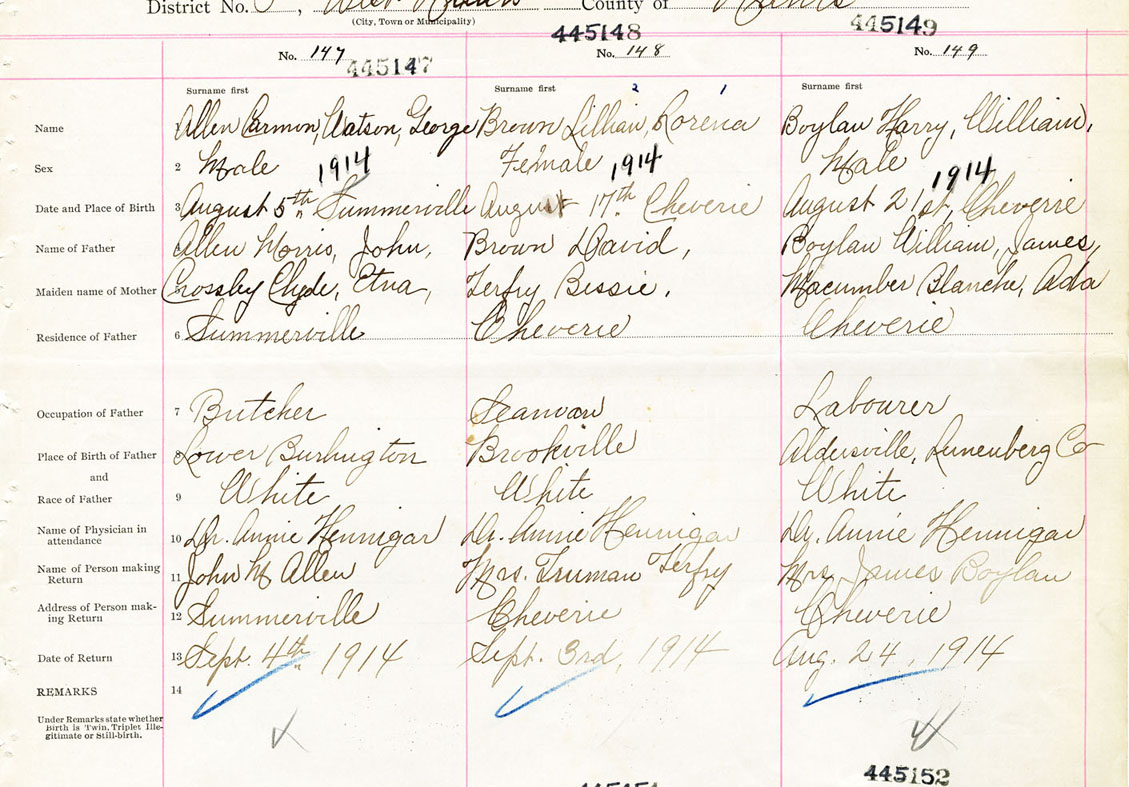 District No. , West Hants County of Hants
(City, Town or Municipality)
445148 445149
No. 147 445147 No. 148 No. 149
Surname first Surname first 2 1 Surname first
Name Allen Carmon, Watson, George Brown Lillian, Rorena Boylan Harry, William,
Sex 2 Male 1914 Female 1914 Male 1914
Date and Place of Birth 3 August 5th Summerville August 17th Cheverie August 21st, Cheverie
Name of Father Allen Morris, John, Brown David, Boylan William, James,
Maiden name of Mother Crossley Clyde, Etna, Terfry Bessie, Macumber Blanche, Ada
Residence of Father 6 Summerville Cheverie Cheverie
Occupation of Father 7 Butcher Seaman Labourer
Place of Birth of Father 8 Lower Burlington Brookville Aldersville, Lunenberg Co
and
Race of Father 9 White White White
Name of Physician in attendance 10 Dr. Annie Hennigar Dr. Annie Hennigar Dr. Annie Hennigar
Name of Person making Return 11 John M Allen Mrs. Truman Terfry Mrs James Boylan
Address of Person mak-ing Return 12 Summerville Cheverie Cheverie
Date of Return 13 Sept. 4th 1914 Sept. 3rd, 1914 Aug. 24 1914
REMARKS 14
Under Remarks state whether
Birth is Twin, Triplet Ille-
gitimate or Still-birth.
445152